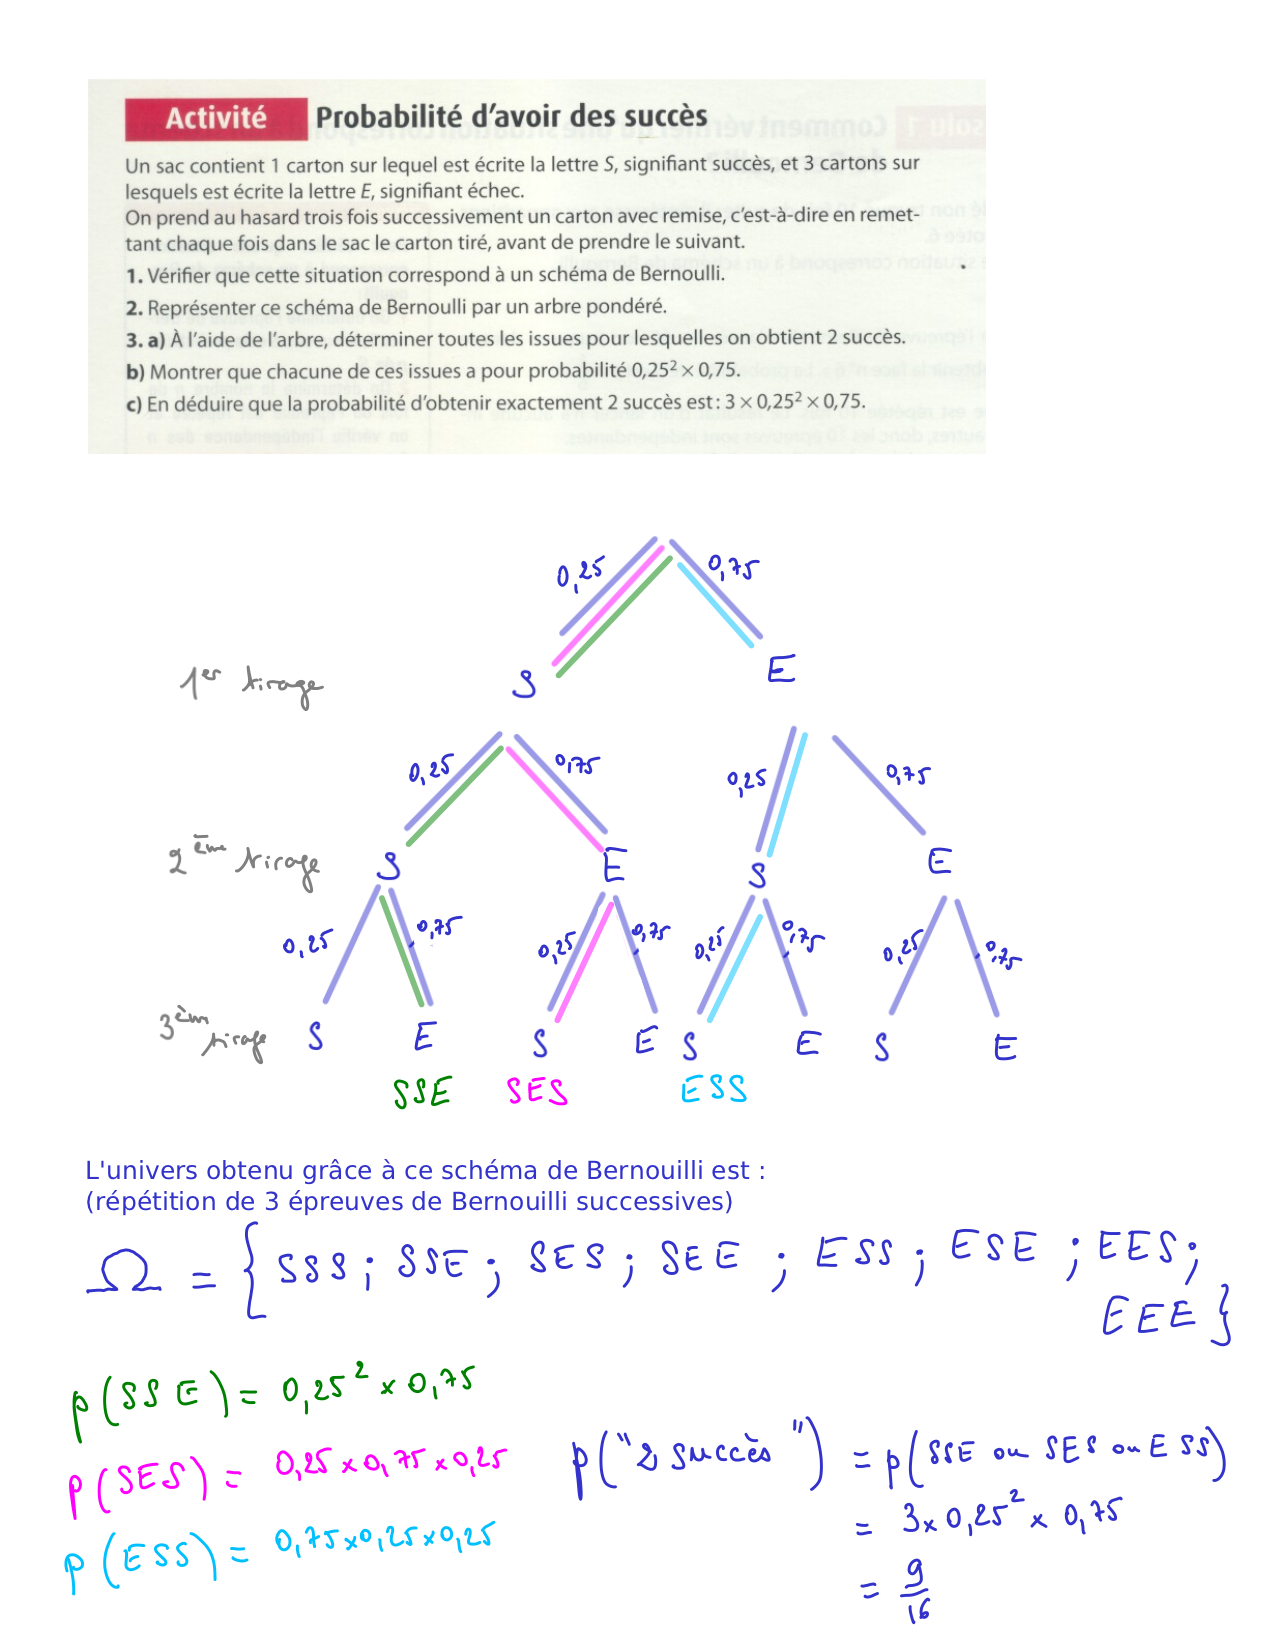 Activité Probabilité d'avoir des succès
Un sac contient 1 carton sur lequel est écrite la lettre S, signifiant succès, et 3 cartons sur
lesquels est écrite la lettre E, signifiant échec.
On prend au hasard trois fois successivement un carton avec remise, c'est-à-dire en remet-
tant chaque fois dans le sac le carton tiré, avant de prendre le suivant.
1. Vérifier que cette situation correspond à un schéma de Bernoulli.
2. Représenter ce schéma de Bernoulli par un arbre pondéré.
3. a) À l'aide de l'arbre, déterminer toutes les issues pour lesquelles on obtient 2 succès.
b) Montrer que chacune de ces issues a pour probabilité 0,25² × 0,75.
c) En déduire que la probabilité d'obtenir exactement 2 succès est : 3 × 0,25² × 0,75.
0,25 0,75
1er tirage S E
0,25 0,75 0,25 0,75
2ème tirage S E S E
0,25 0,75 0,25 0,75 0,25 0,75 0,25 0,75
3ème tirage S E S E S E S E
SSE SES ESS
L'univers obtenu grâce à ce schéma de Bernouilli est :
(répétition de 3 épreuves de Bernouilli successives)
Ω = { SSS ; SSE ; SES ; SEE ; ESS ; ESE ; EES ;
EEE }
p(SSE) = 0,25² × 0,75
p(SES) = 0,25 × 0,75 × 0,25
p(ESS) = 0,75 × 0,25 × 0,25
p("2 succès") = p(SSE ou SES ou ESS)
= 3 × 0,25² × 0,75
= 9/16